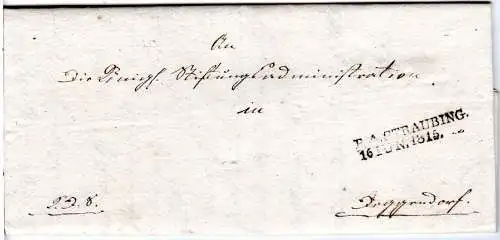 An
die Königl. Stiftungsadministration
in
P. A. STRAUBING.
16 JUN. 1815.
R. D. S.
Deggendorf.